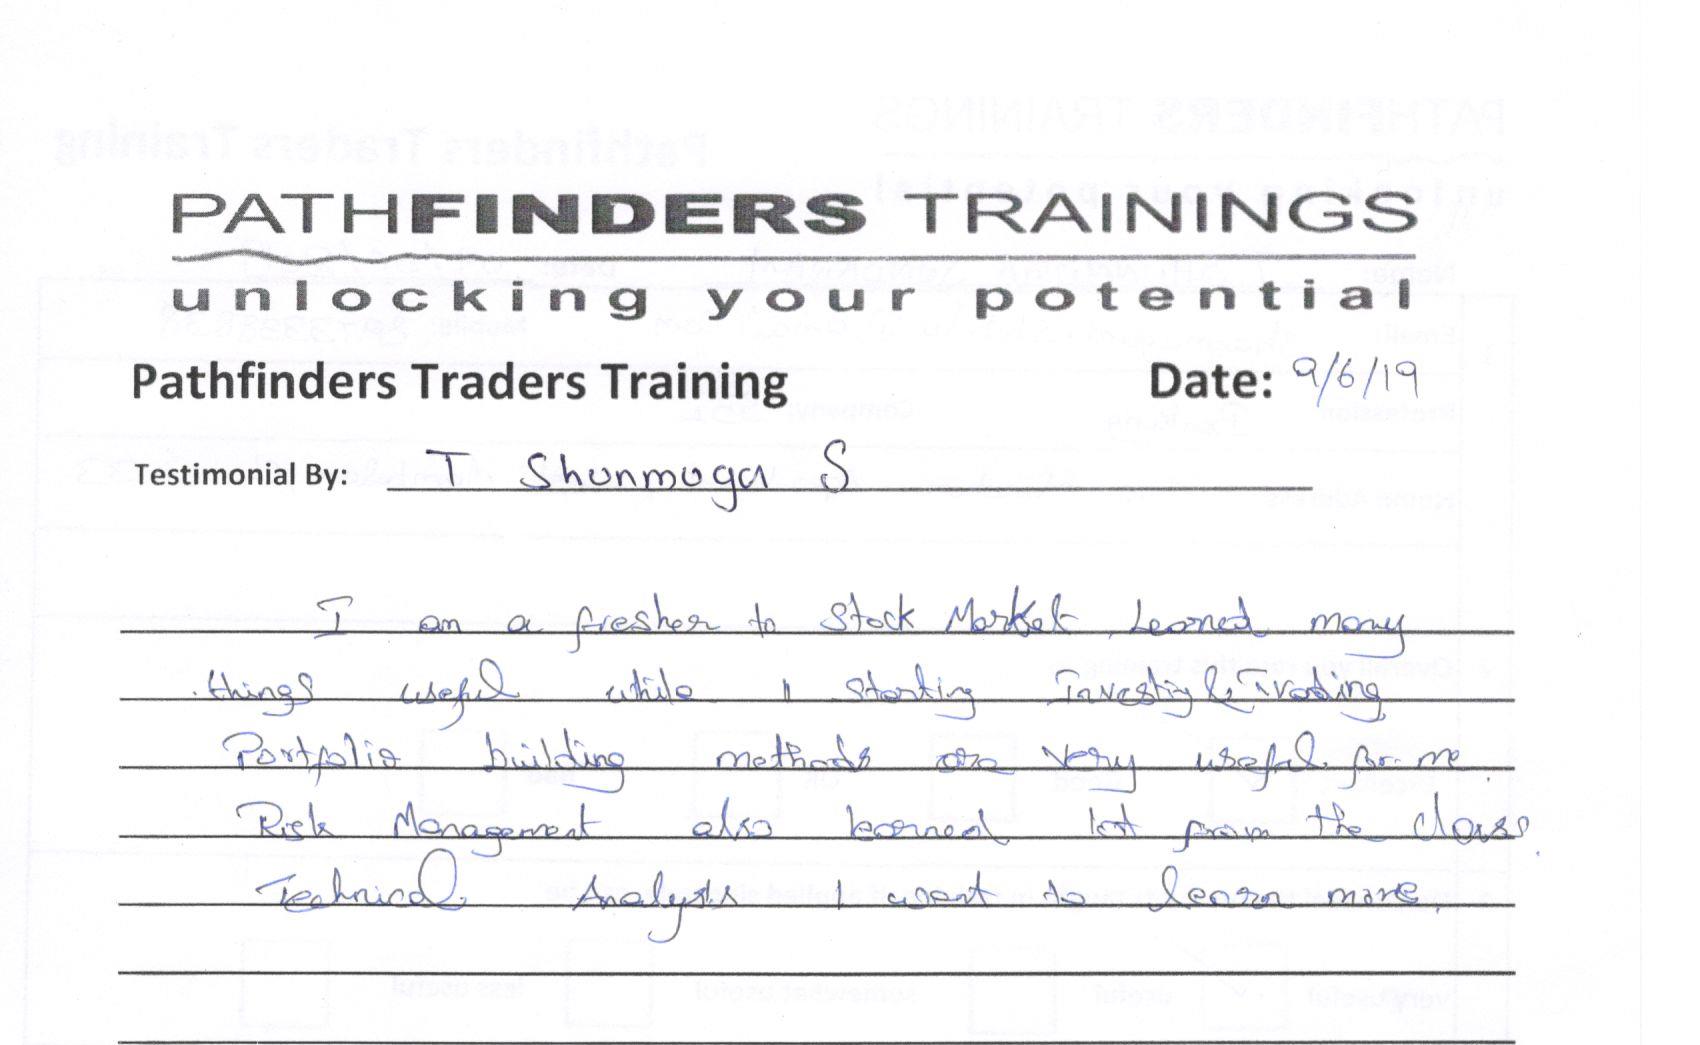 PATHFINDERS TRAININGS
unlocking your potential
Pathfinders Traders Training Date: 9/6/19
Testimonial By: T Shunmuga S
I am a fresher to Stock Market Learned many
things useful while I starting Investig & Trading
Portfolio building methods are very useful for me.
Risk Management also learned lot from the class.
Technical Analysis I want to learn more.